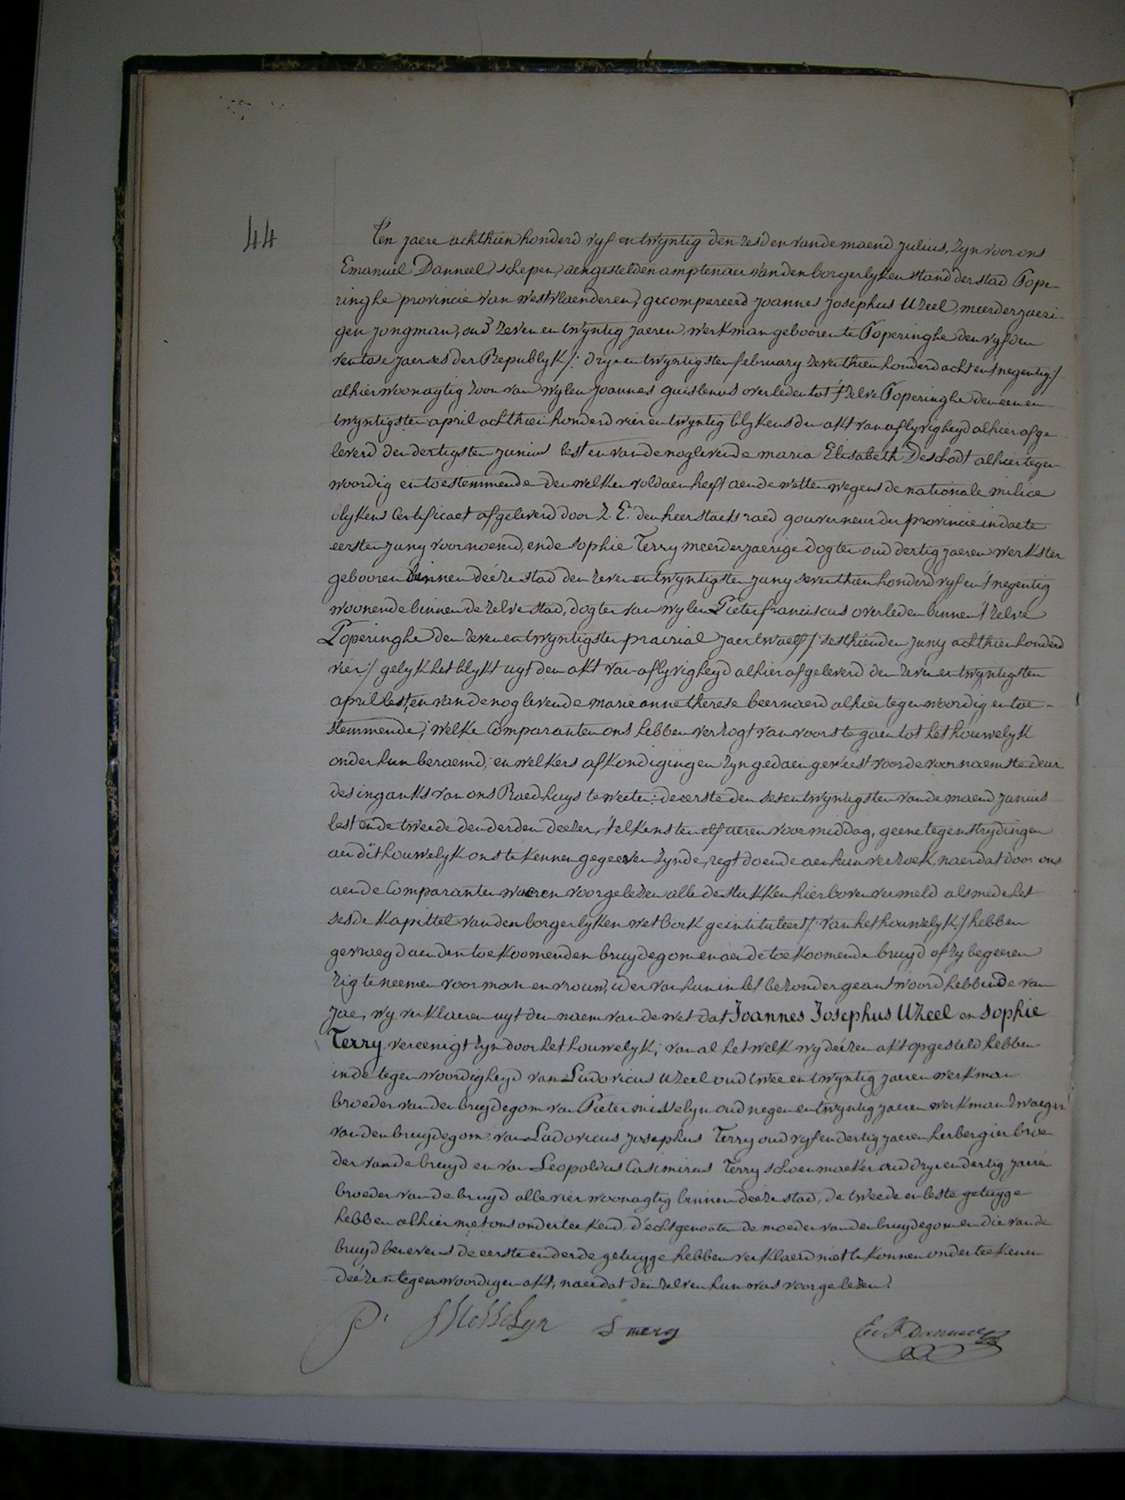 44
Ten jaere achthien honderd vyf en twyntig den zesden van de maend julius, zyn voor ons
Emanuel Danneel schepen, aengestelden amptenaer van den borgerlyken stand der stad Pope-
ringhe provincie van westvlaenderen, gecompareerd joannes josephus Uzeel, meerderjaeri-
gen jongman, oud zeven en twyntig jaeren, werkman gebooren te Poperinghe den vyfden
ventose jaer ses der Republyk /: dryentwyntigsten february zeventhien honderd acht en tnegentig /
alhier woonagtig zoon van wylen joannes guislenus overleden tot t'zelve Poperinghe den een en
twyntigsten april achthien honderd vier en twyntig blykens den akt van aflyvigheyd alhier afge-
leverd den dertigsten junius lest en van de nog levende maria Elisabeth Deschodt alhier tegen-
woordig en toestemmende den welken voldaen heeft aen de wetten wegens de nationale milice
blykens Certificaet afgeleverd door Z. E. den heer staets raed gouverneur der provincie in daete
eersten juny voornoemd, ende sophie Terry meerderjaerige dogter oud dertig jaeren werkster
gebooren binnen deeze stad den zeven en twyntigsten juny seventhien honderd vyf en t'negentig
woonende binnen de zelve stad, dogter van wylen Pieter franciscus overleden binnen t'zelve
Poperinghe den zeven en twyntigsten prairial jaer twaelf / sesthienden juny achthien honderd
vier / gelyk het blykt uyt den akt van aflyvigheyd alhier afgeleverd den zeven en twyntigsten
april lest, en van de nog levende marie anne therese beernaerd alhier tegenwoordig en toe-
stemmende; welke Comparanten ons hebben verzogt van voorts te gaen tot het houwelyk
onder hun beraemd, en welkers afkondigingen zyn gedaen geweest voor de voornaemste deur
des ingangs van ons Raedhuys te weeten: de eerste den sesentwyntigsten van de maend junius
lest ende tweede den derden deezer, t'elkens ten elf ueren voormiddag, geene tegenstrydingen
aen dit houwelyk ons te kennen gegeeven zynde, regt doende aen hun verzoek, naer dat door ons
aen de Comparanten waeren voorgelezen alle de stukken hier boven vermeld als mede het
sesde kapittel van den borgerlyken wetboek geintituleert / van het houwelyk / hebben
gevraegd aen den toekoomenden bruydegom en aen de toekoomende bruyd of zy begeeren
zig te neemen voor man en vrouw, ider van hun in het bezonder geantwoord hebbende van
jae, wy verklaeren uyt den naem van de wet dat Joannes Josephus Uzeel en Sophie
Terry vereenigt zyn door het houwelyk; van al het welk wy deezen akt opgesteld hebben
in de tegenwoordigheyd van Ludovicus Uzeel oud twee en twyntig jaeren werkman
broeder van den bruydegom van Pieter misselyn oud negen en twyntig jaeren werkman zwaeger
van den bruydegom van Ludovicus josephus Terry oud vyf en dertig jaeren herbergier broe-
der van de bruyd en van Leopoldus Casimirus Terry schoenmaeker oud dry en dertig jaeren
broeder van de bruyd alle vier woonagtig binnen deeze stad, de tweede en leste getuyge
hebben alhier met ons onderteekend, d'echtgenooten de moeder van den bruydegom en die van de
bruyd benevens de eerste en derde getuyge hebben verklaerd niet te konnen onderteekenen
deezen tegenwoordigen akt, naer dat den zelven hun was voorgelezen.